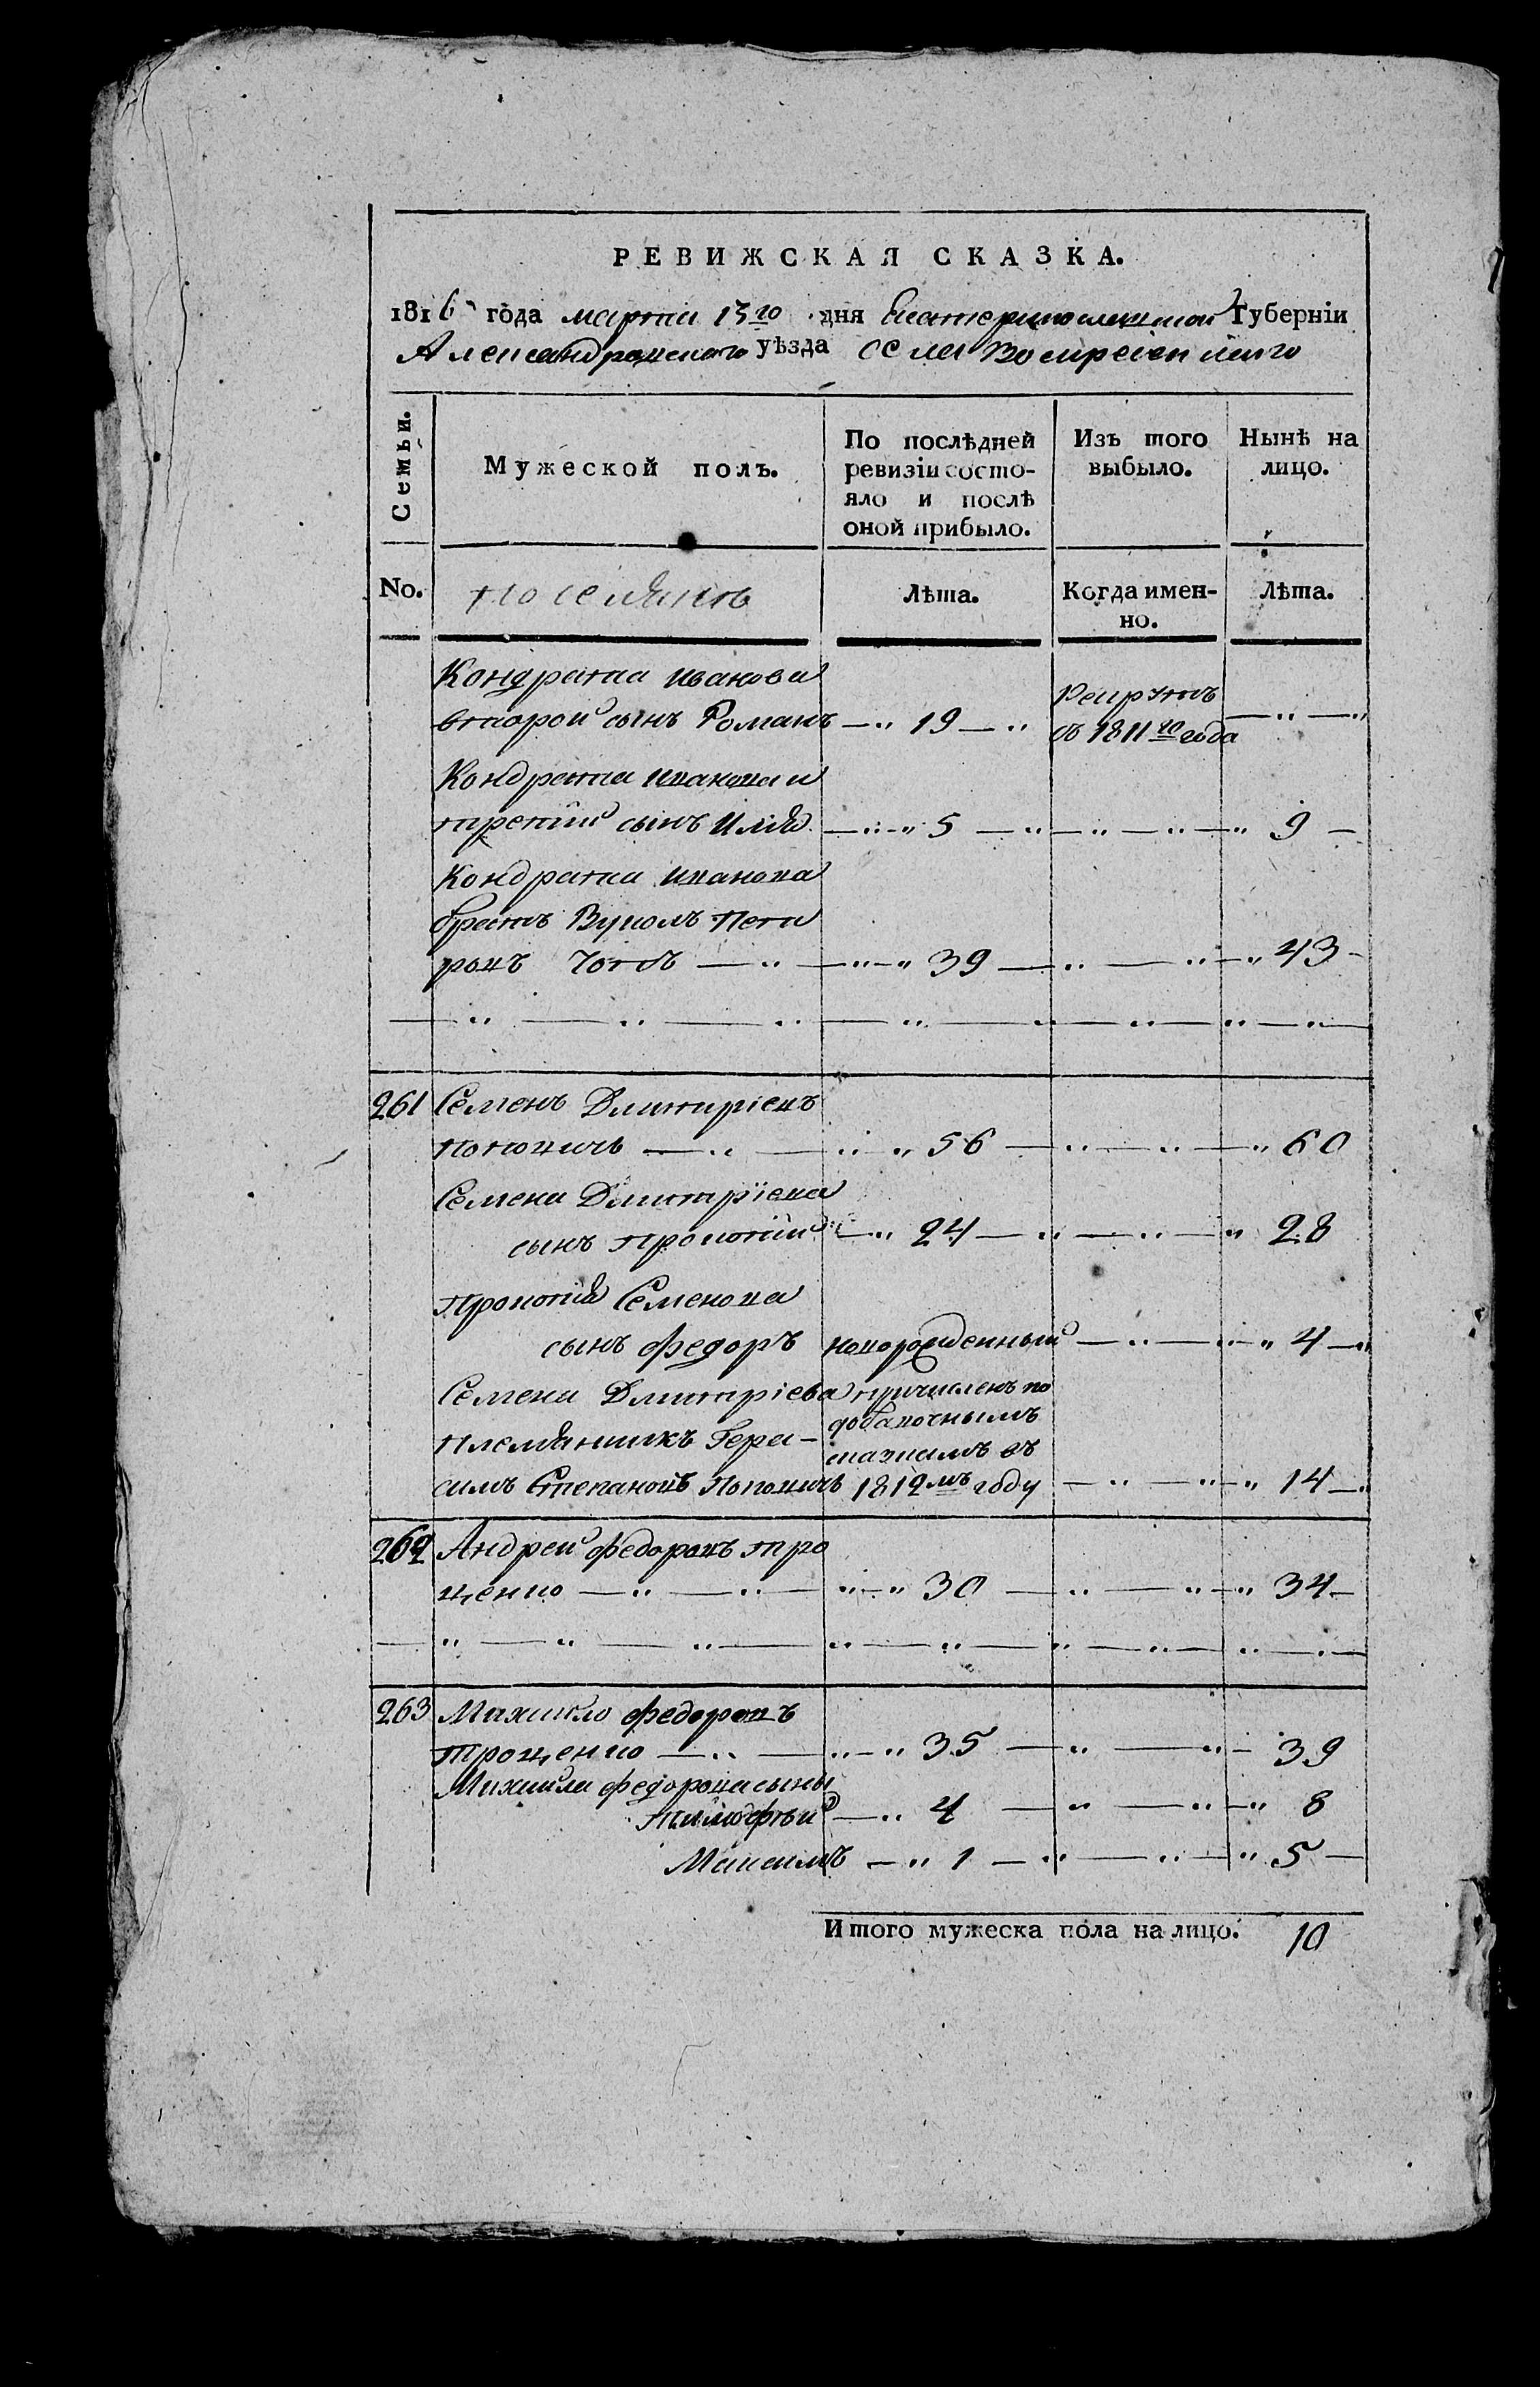 РЕВИЖСКАЯ СКАЗКА.
1816 года марта 13го дня Екатеринославской Губерніи
Александровского уѣзда села Воскресенского
Семьи. Мужеской полъ. По послѣдней ревизіи состояло и послѣ оной прибыло. Изъ того выбыло. Нынѣ на лицо.
No. поселянъ Лѣта. Когда имен-но. Лѣта.
Кондрата Иванова
второй сынъ Романъ — 19 — Рекрутъ въ 1811го года — „ — „
Кондрата Иванова
третий сынъ Илия — „ 5 — „ — „ — „ 9 —
Кондрата Иванова
братъ Вуколъ Пет
ровъ — „ 39 — „ — „ — „ 43 —
261 Семенъ Дмитріевъ
Поповичъ — „ — „ 56 — „ — „ — „ 60
Семена Дмитріева
сынъ Прокопий — „ 24 — „ — „ — „ 28
Прокопия Семенова
сынъ Федоръ новорожденный — „ — „ 4 — „
Семена Дмитріева причисленъ по
племянникъ Гера- добавочнымъ сказкамъ въ
симъ Степановъ Поповичъ 1812мъ году — „ — „ 14 — „
262 Андрей Федоровъ Тро
ценко — „ — „ — „ 30 — „ — „ — „ 34 —
263 Михайло Федоровъ
Троценко — „ — „ 35 — „ — „ — 39
Михайла Федорова сыны
Тимофѣй — „ 4 — „ — „ — „ 8
Максимъ — „ 1 — „ — „ — „ 5 —
Итого мужеска пола на лицо. 10